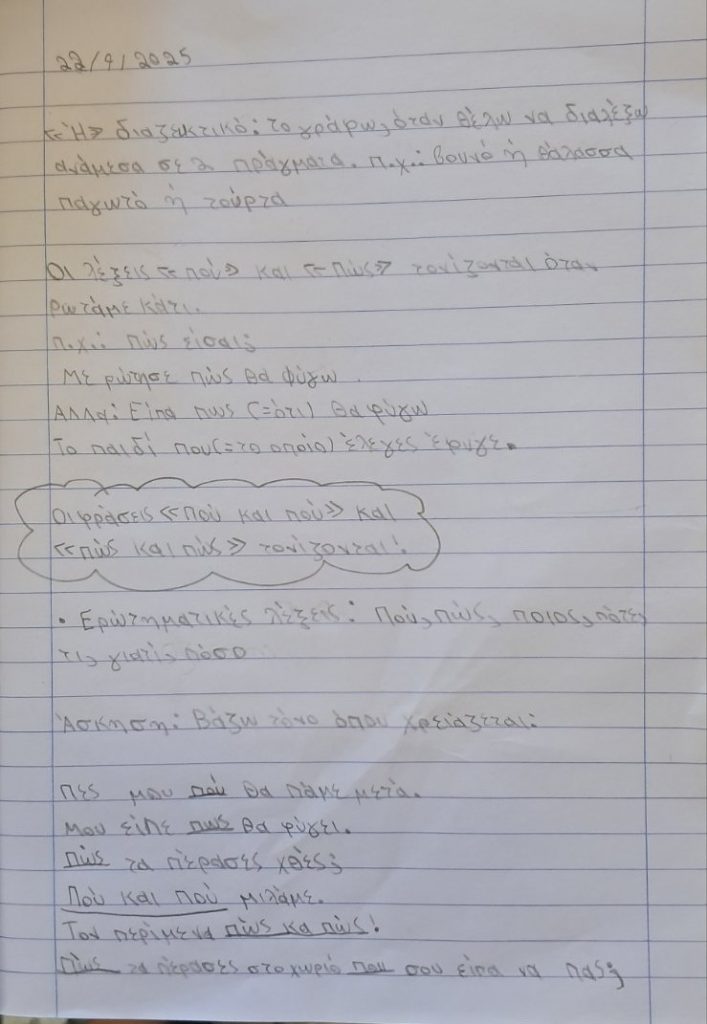 22/9/2025
«Ή» διαζεκτικό: το γράφω, όταν θέλω να διαλέξω
ανάμεσα σε 2 πράγματα. π.χ.: βουνό ή θάλασσα
παγωτό ή τούρτα
Οι λέξεις «πού» και «πώς» τονίζονται όταν
ρωτάμε κάτι.
π.χ.: πώς είσαι;
Με ρώτησε πώς θα φύγω
Αλλά: Είπα πως (=ότι) θα φύγω
Το παιδί που (=το οποίο) έλεγες έφυγε.
Οι φράσεις «πού και πού» και
«πώς και πώς» τονίζονται!
• Ερώτηματικές λέξεις: Πού, πώς, ποιος, πότε,
τι, γιατί, πόσο
Άσκηση: Βάζω τόνο όπου χρειάζεται:
Πες μου πού θα πάμε μετά.
Μου είπε πως θα φύγει.
Πώς τα πέρασες χθες;
Πού και πού μιλάμε.
Τον περίμενα πώς κα πώς!
Πώς τα πέρασες στο χωριό που σου είπα να πας;